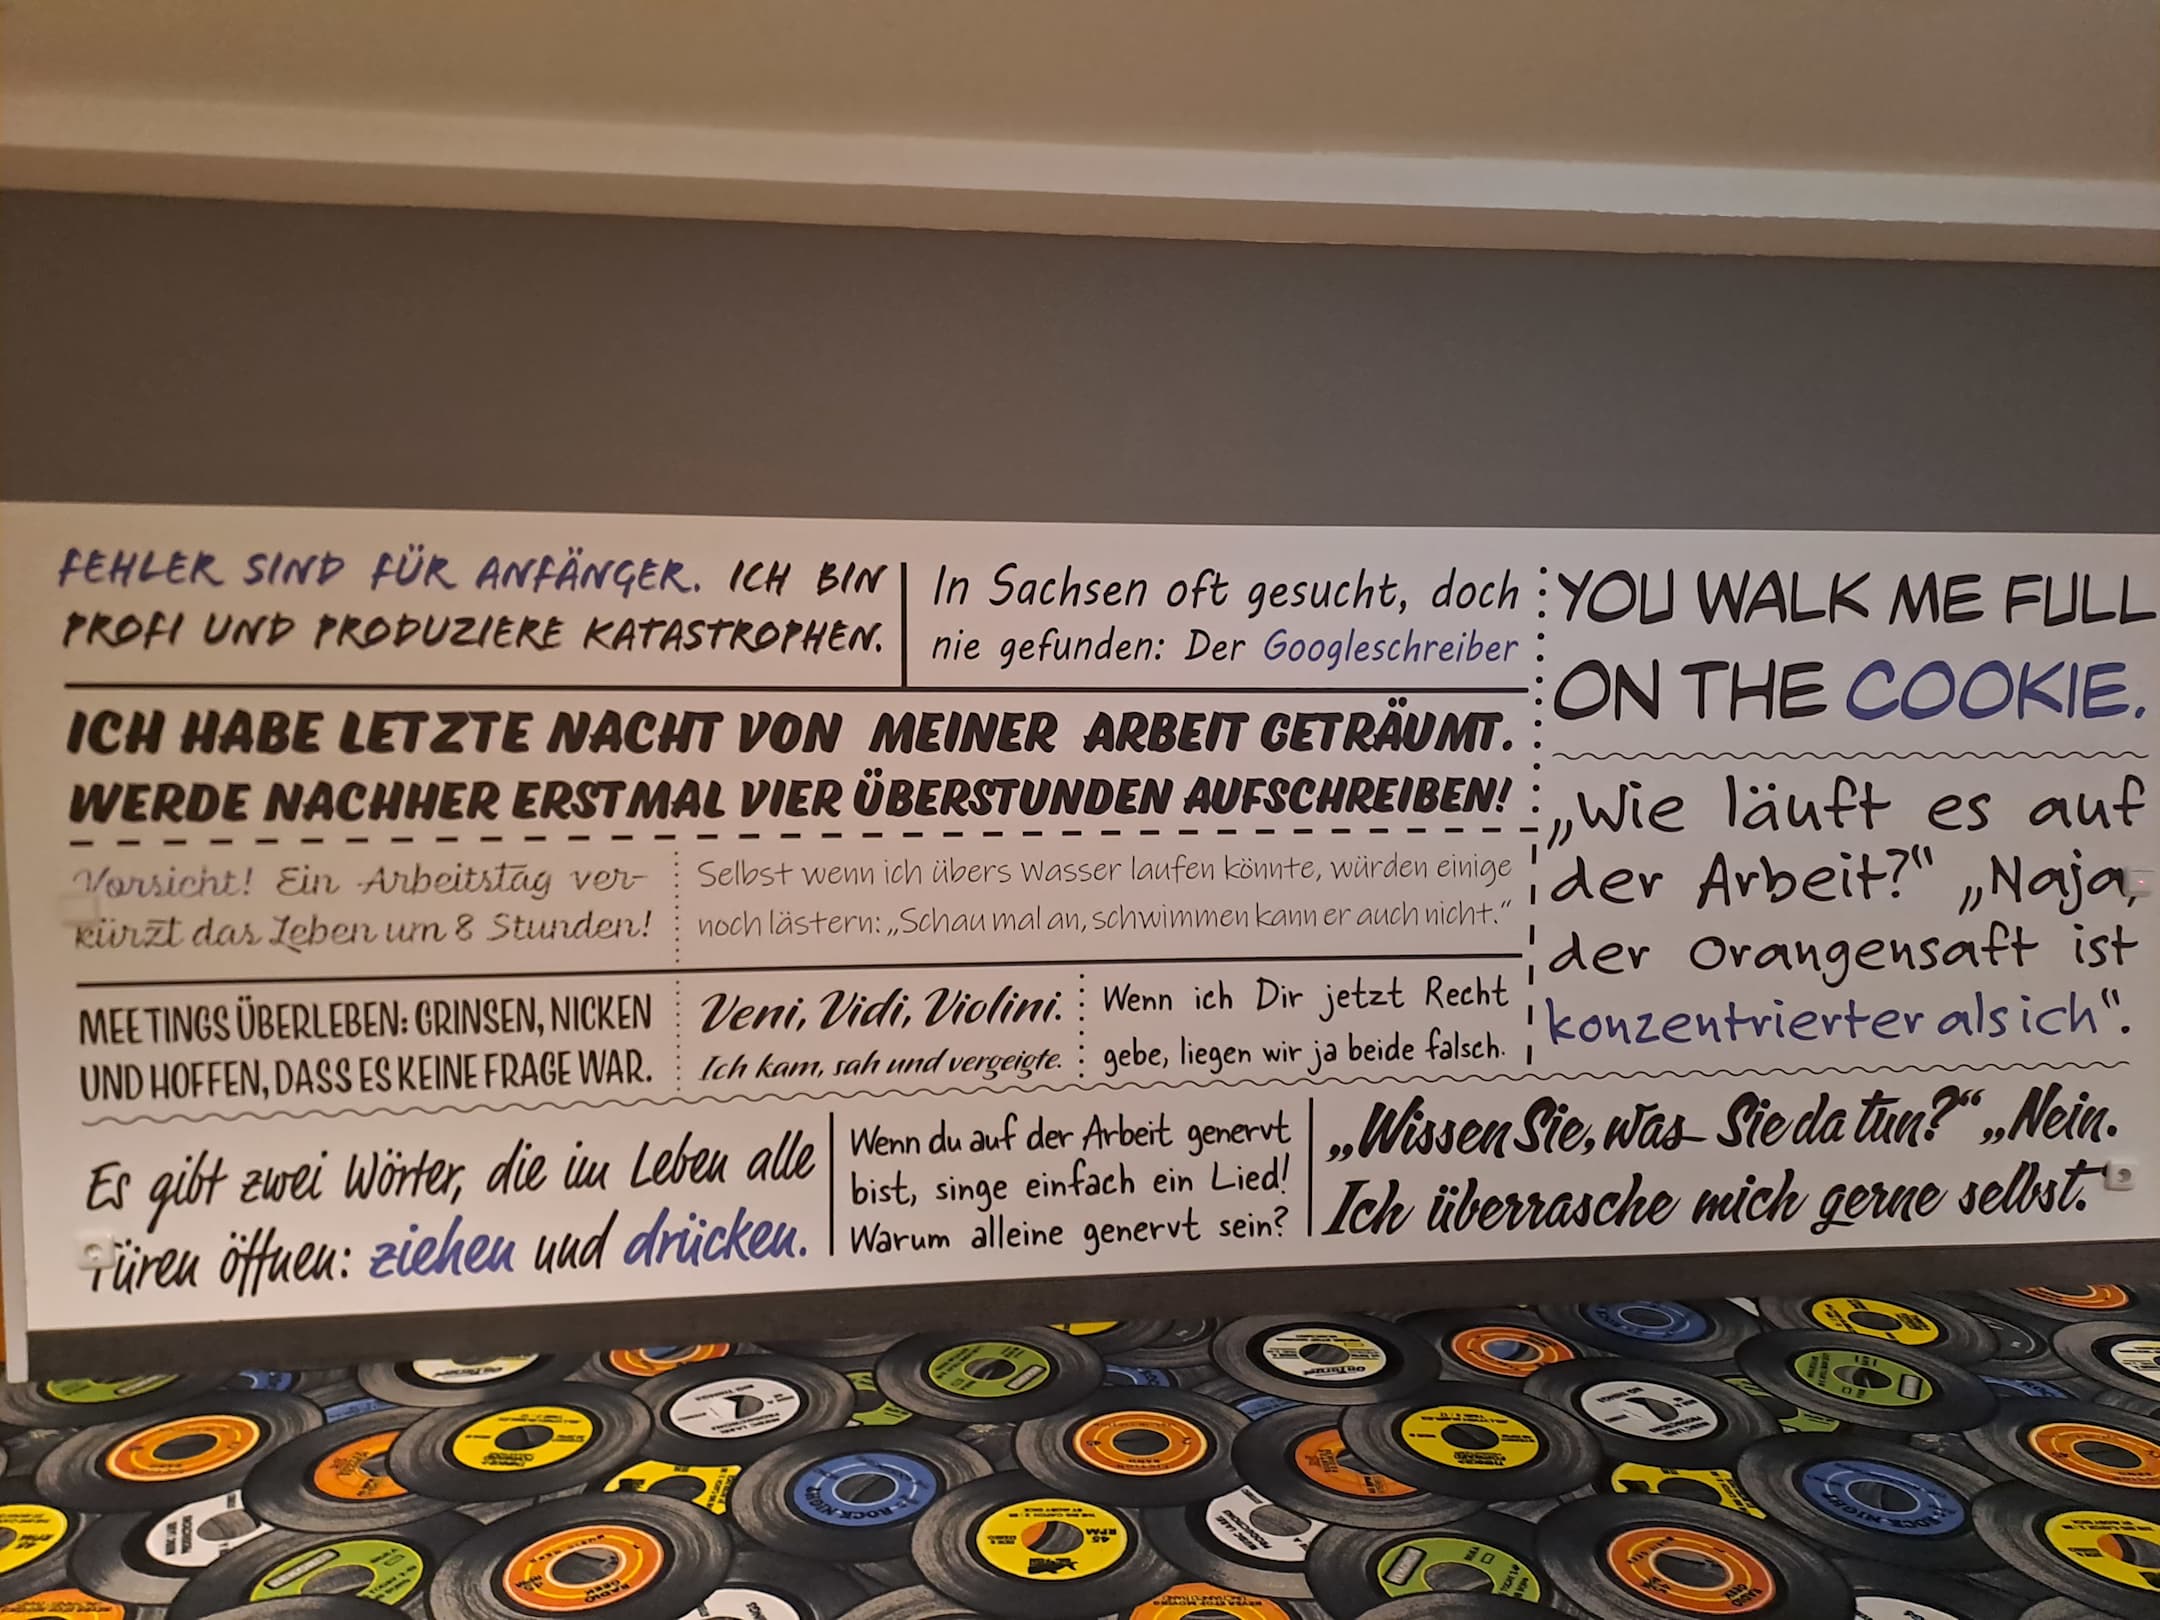 FEHLER SIND FÜR ANFÄNGER. ICH BIN
PROFI UND PRODUZIERE KATASTROPHEN.
In Sachsen oft gesucht, doch
nie gefunden: Der Googleschreiber
YOU WALK ME FULL
ON THE COOKIE.
ICH HABE LETZTE NACHT VON MEINER ARBEIT GETRÄUMT.
WERDE NACHHER ERSTMAL VIER ÜBERSTUNDEN AUFSCHREIBEN!
„Wie läuft es auf
der Arbeit?“ „Naja,
der Orangensaft ist
konzentrierter als ich“.
Vorsicht! Ein Arbeitstag ver-
kürzt das Leben um 8 Stunden!
Selbst wenn ich übers Wasser laufen könnte, würden einige
noch lästern: „Schau mal an, schwimmen kann er auch nicht.“
MEETINGS ÜBERLEBEN: GRINSEN, NICKEN
UND HOFFEN, DASS ES KEINE FRAGE WAR.
Veni, Vidi, Violini.
Ich kam, sah und vergeigte.
Wenn ich Dir jetzt Recht
gebe, liegen wir ja beide falsch.
Es gibt zwei Wörter, die im Leben alle
Türen öffnen: ziehen und drücken.
Wenn du auf der Arbeit genervt
bist, singe einfach ein Lied!
Warum alleine genervt sein?
„Wissen Sie, was Sie da tun?“ „Nein.
Ich überrasche mich gerne selbst.“
ROCK NIGHT
ROCK NIGHT
45 RPM
RADIO GEEK